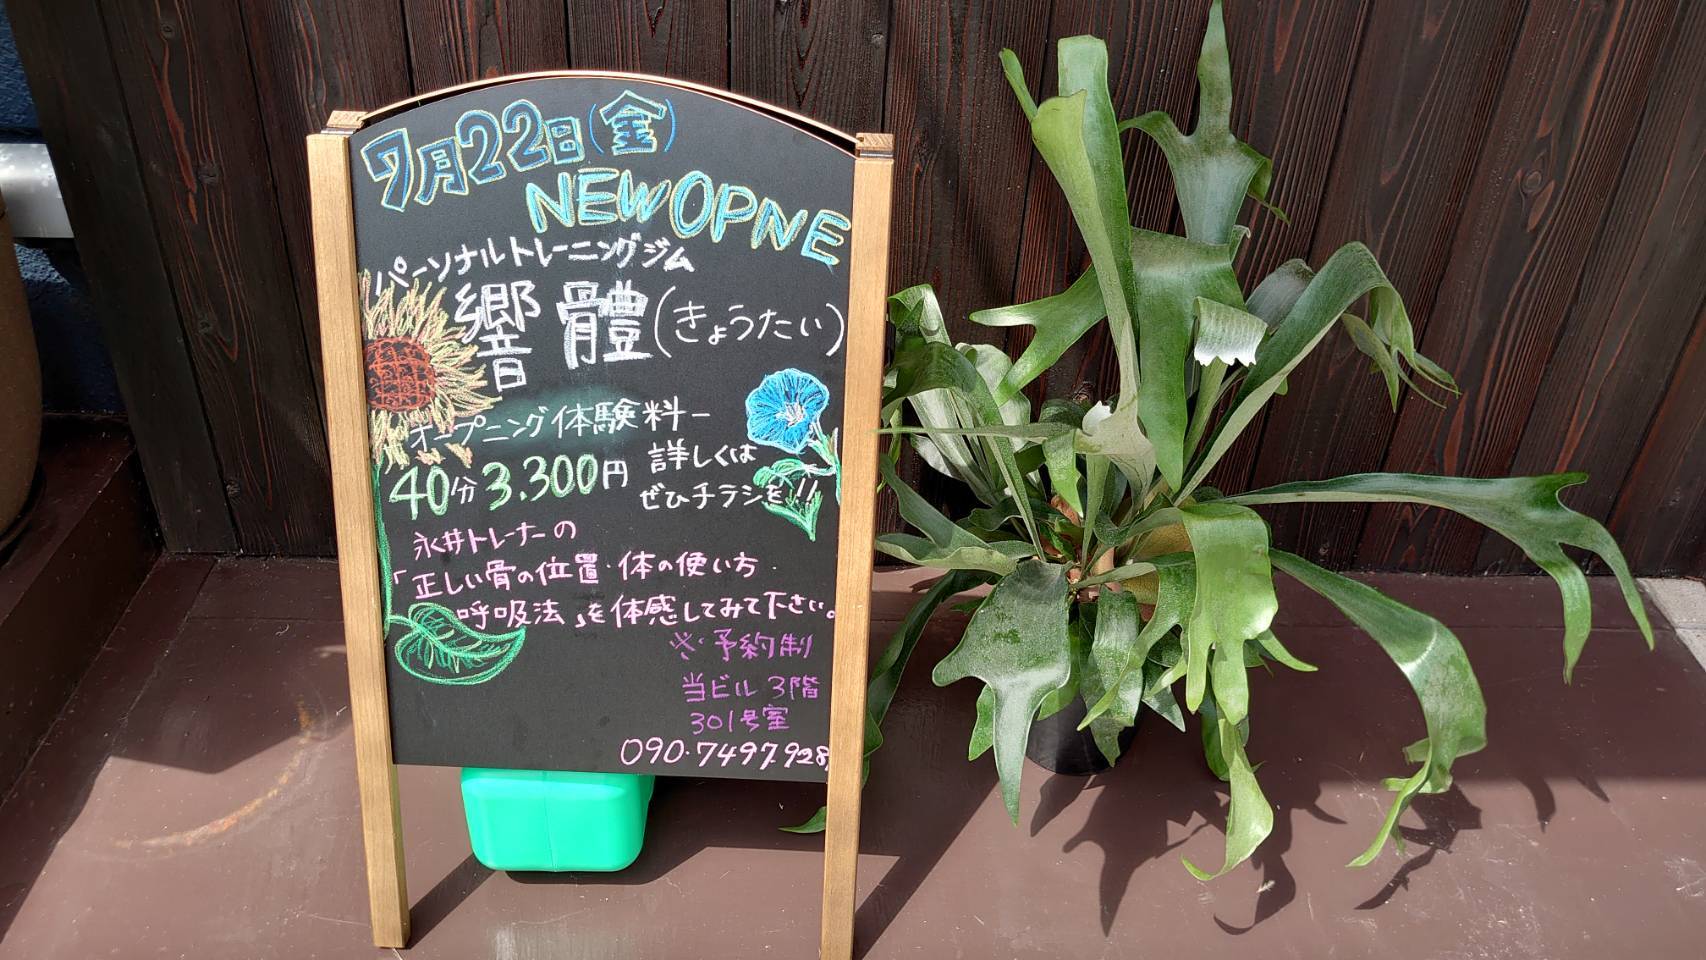 7月22日(金)
NEW OPNE
パーソナルトレーニングジム
響體(きょうたい)
オープニング体験料ー
40分 3.300円
詳しくは
ぜひチラシを!!
永井トレーナーの
「正しい骨の位置・体の使い方・
呼吸法」を体感してみて下さい。
※・予約制
当ビル 3階
301号室
090.7497.928